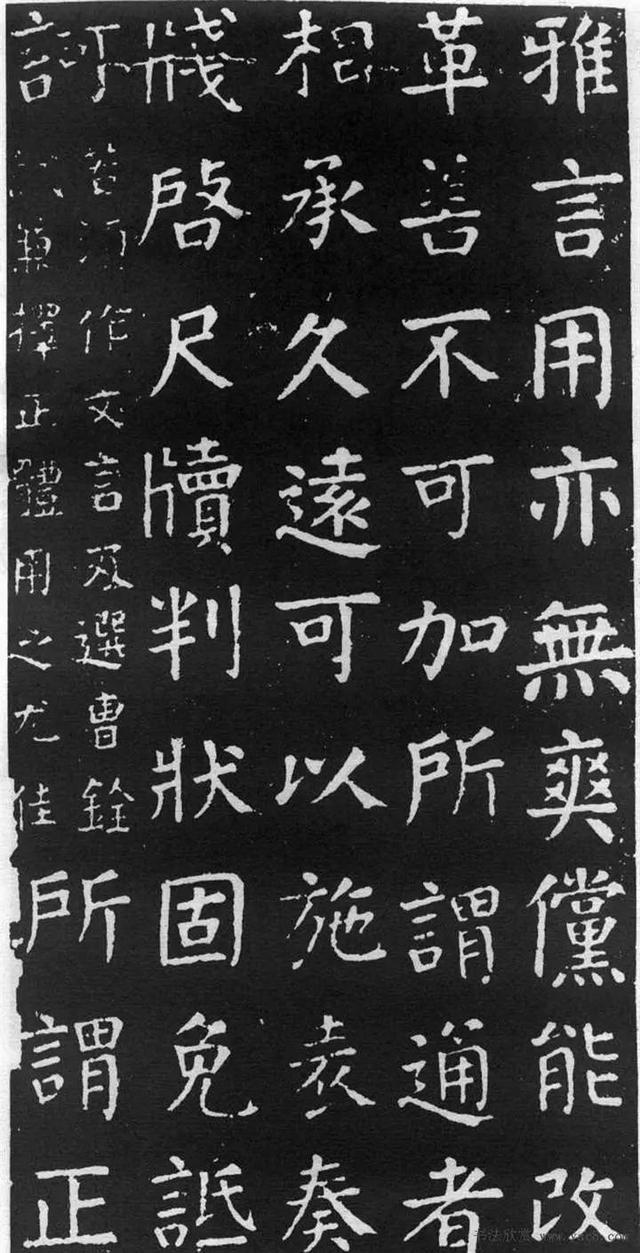 雅言用亦無爽儻能改
革善不可加所謂通者
相承久遠可以施表奏
牋啓尺牘判狀固免詆
訶
若須作文言及選曹銓
試兼擇正體用之尤佳
所謂正
书法欣赏